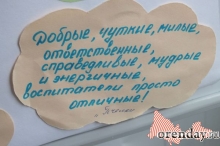 Добрые, чуткие, милые,
ответственные,
справедливые, мудрые
и энергичные,
воспитатели просто
отличные!
orenday.ru